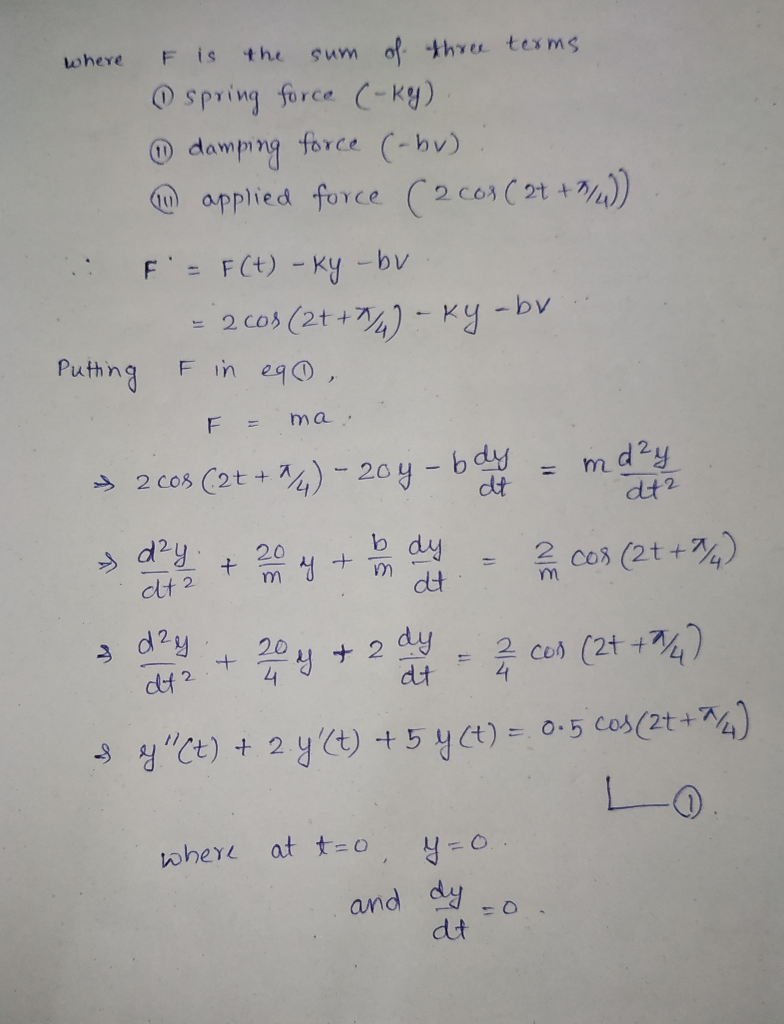 where F is the sum of three terms
(i) spring force (-ky)
(ii) damping force (-bv)
(iii) applied force (2 cos(2t + π/4))
∴ F = F(t) - ky - bv
= 2 cos(2t + π/4) - ky - bv
Putting F in eq①,
F = ma.
⇒ 2 cos(2t + π/4) - 20y - b dy/dt = m d²y/dt²
⇒ d²y/dt² + 20/m y + b/m dy/dt = 2/m cos(2t + π/4)
⇒ d²y/dt² + 20/4 y + 2 dy/dt = 2/4 cos(2t + π/4)
⇒ y''(t) + 2y'(t) + 5y(t) = 0.5 cos(2t + π/4)
①.
where at t=0, y=0.
and dy/dt = 0.